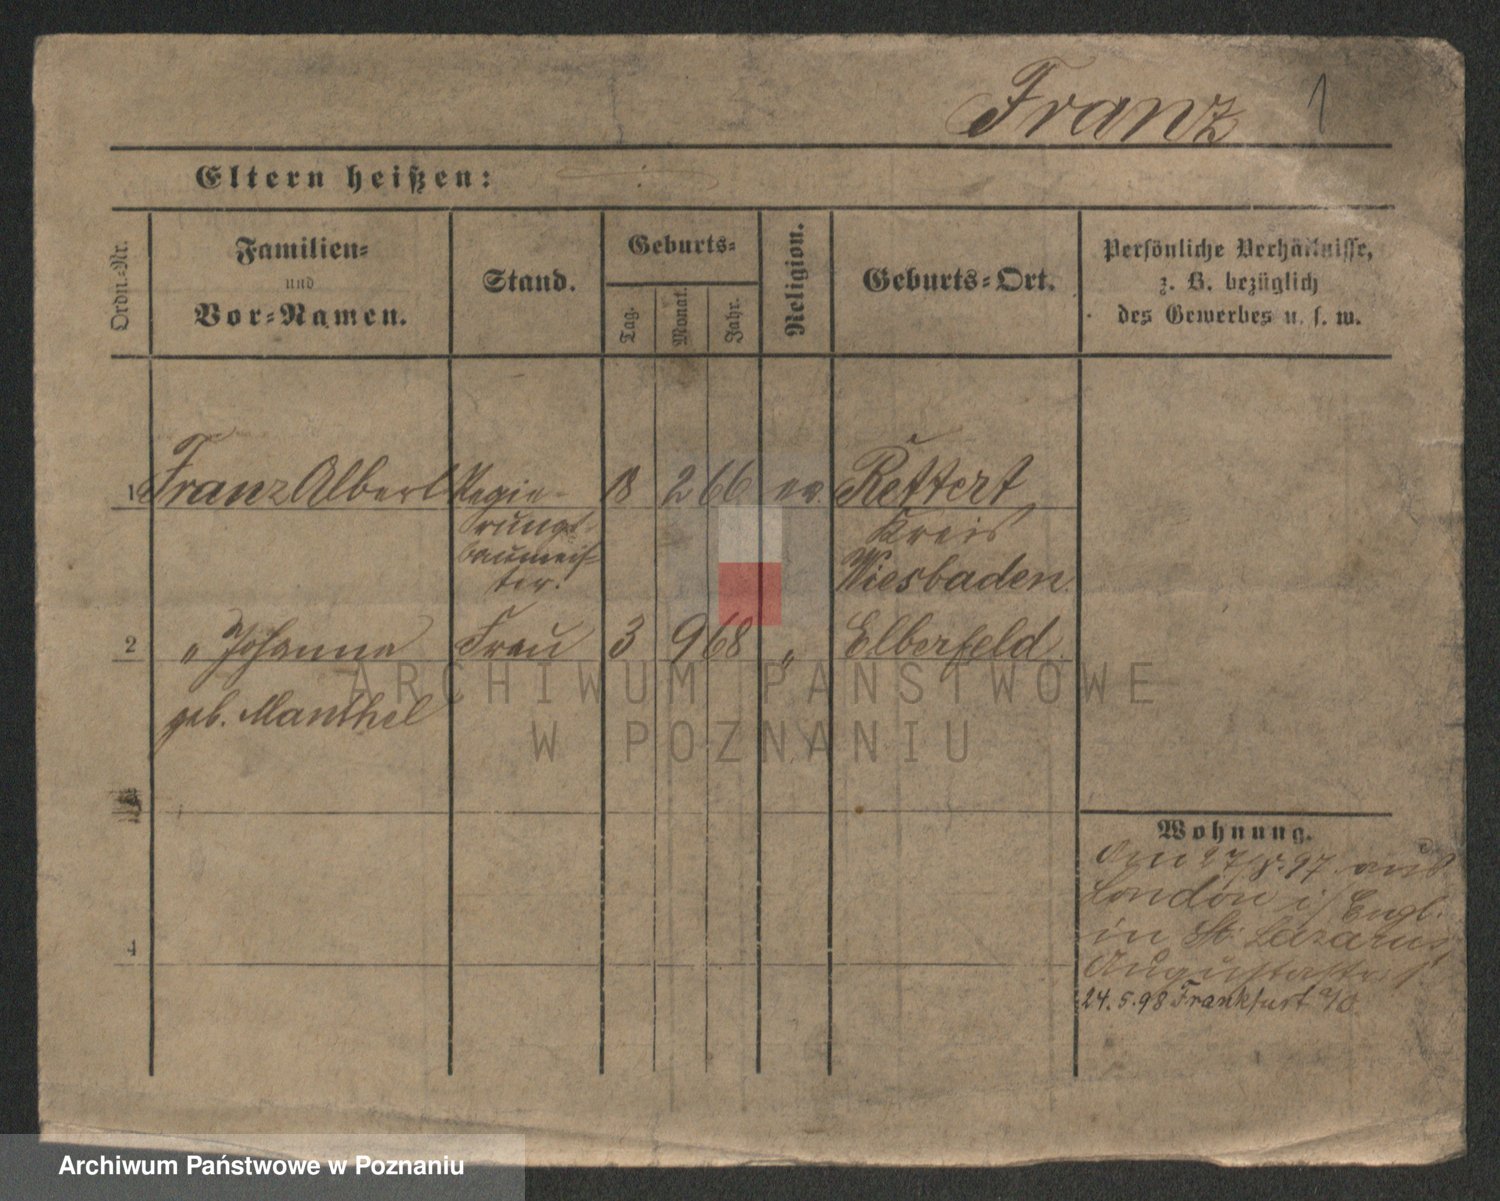 Franz 1
Eltern heißen:
Ordn.=Nr.
Familien=
und
Vor=Namen.
Stand.
Geburts=
Tag.
Monat.
Jahr.
Religion.
Geburts=Ort.
Persönliche Verhältnisse,
z. B. bezüglich
des Gewerbes u. s. w.
1 Franz Albert Regie- 18 2 66 ev. Rettert
rungs-
baumeis-
ter.
Kreis
Wiesbaden.
2 „ Johanna Frau 3 9 68 „ Elberfeld.
geb. Manthel
4
Wohnung.
97 aus
London i/ Engl.
in St. Lazarus
Augustastr. 1
24.5.98 Frankfurt a/O
ARCHIWUM PAŃSTWOWE
W POZNANIU
Archiwum Państwowe w Poznaniu